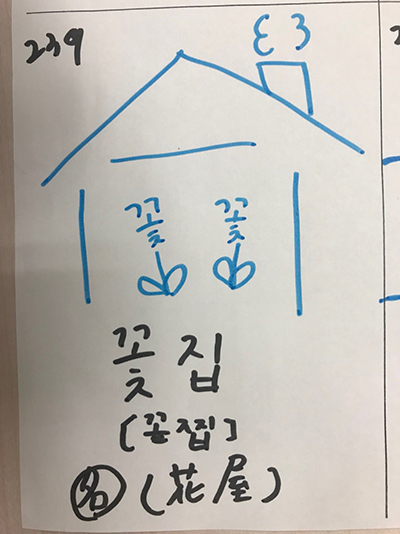 239
꽃 꽃
꽃집
[꼳찝]
名 (花屋)